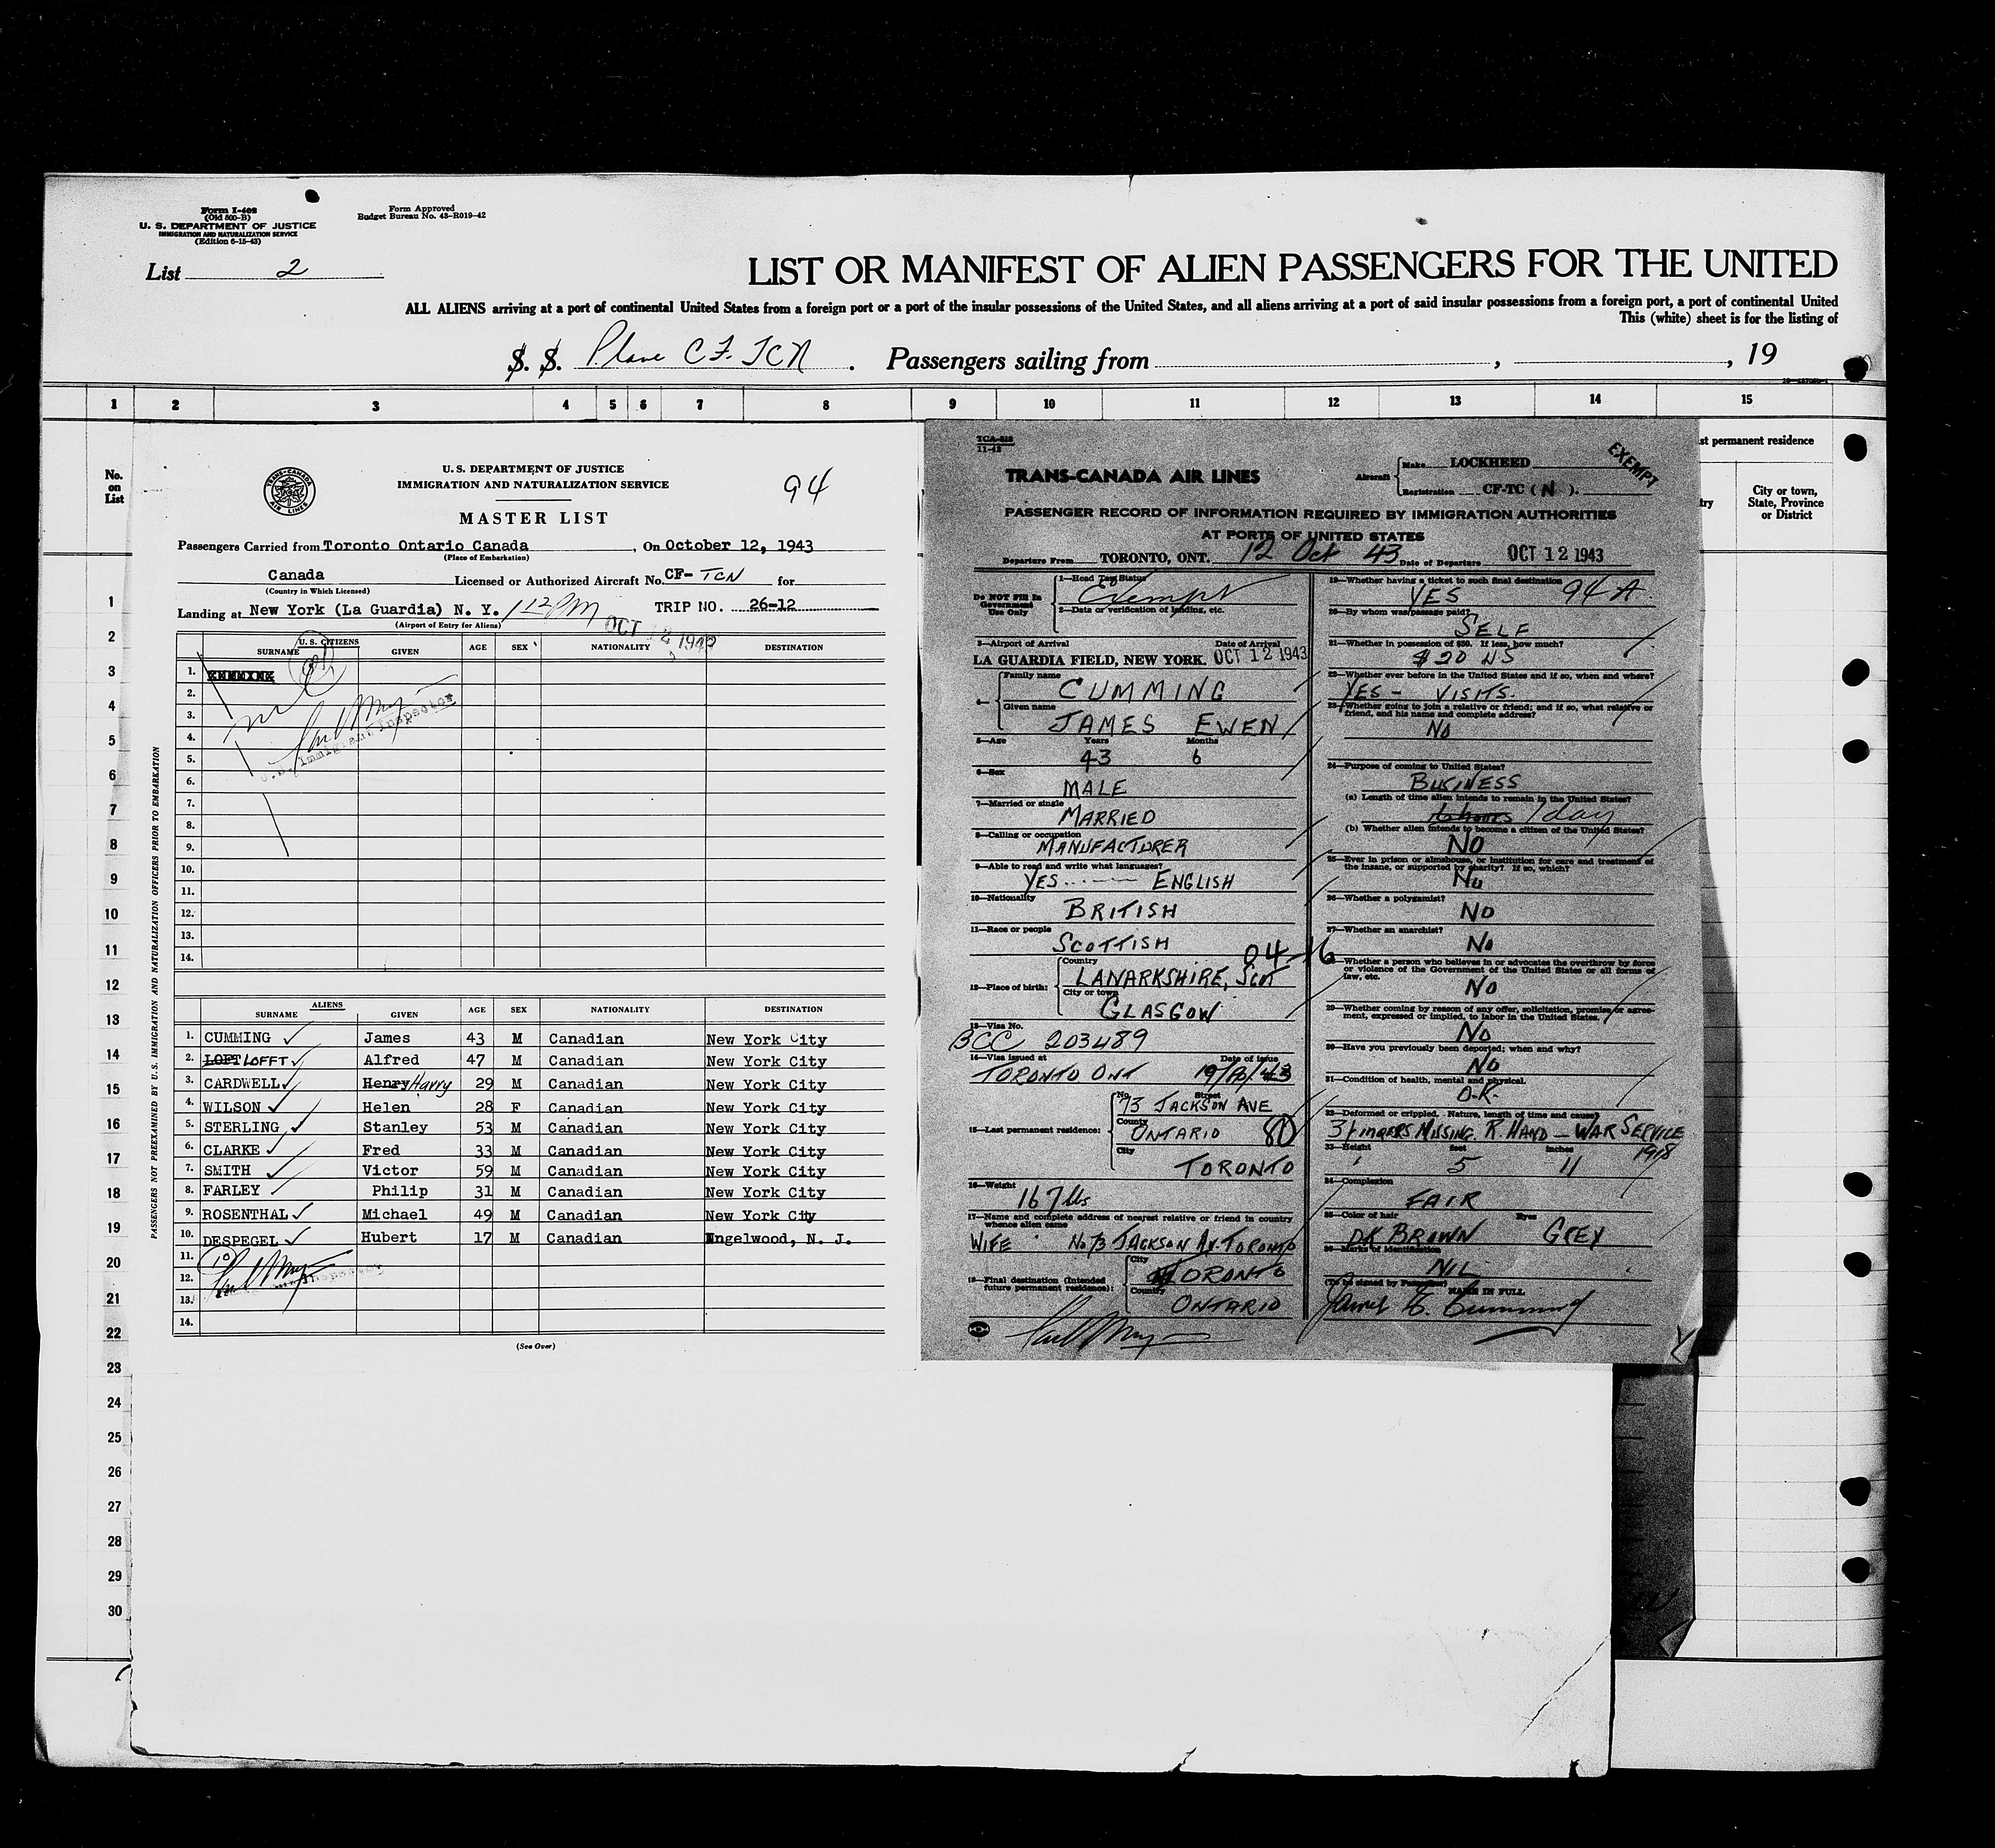 Form I-402
(Old 500-B)
U. S. DEPARTMENT OF JUSTICE
IMMIGRATION AND NATURALIZATION SERVICE
(Edition 6-15-43)
Form Approved
Budget Bureau No. 43-R019-42
List 2
LIST OR MANIFEST OF ALIEN PASSENGERS FOR THE UNITED
ALL ALIENS arriving at a port of continental United States from a foreign port or a port of the insular possessions of the United States, and all aliens arriving at a port of said insular possessions from a foreign port, a port of continental United
This (white) sheet is for the listing of
S. S. Plane CF. TCN . Passengers sailing from , , 19
1 2 3 4 5 6 7 8 9 10 11 12 13 14 15
No. on List
st permanent residence
try
City or town, State, Province or District
1
2
3
4
5
6
7
8
9
10
11
12
13
14
15
16
17
18
19
20
21
22
23
24
25
26
27
28
29
30
PASSENGERS NOT PREEXAMINED BY U.S. IMMIGRATION AND NATURALIZATION OFFICERS PRIOR TO EMBARKATION
TRANS-CANADA AIR LINES
U. S. DEPARTMENT OF JUSTICE
IMMIGRATION AND NATURALIZATION SERVICE
94
MASTER LIST
Passengers Carried from Toronto Ontario Canada , On October 12, 1943
(Place of Embarkation)
Canada Licensed or Authorized Aircraft No. CF- TCN for
(Country in Which Licensed)
Landing at New York (La Guardia) N. Y. 1 12 PM TRIP NO. 26-12
(Airport of Entry for Aliens)
OCT 12 1943
U. S. CITIZENS
SURNAME GIVEN AGE SEX NATIONALITY DESTINATION
1.
2.
3.
4.
5.
6.
7.
8.
9.
10.
11.
12.
13.
14.
U.S. Immigrant Inspector
ALIENS
SURNAME GIVEN AGE SEX NATIONALITY DESTINATION
1. CUMMING James 43 M Canadian New York City
2. LOFT LOFFT Alfred 47 M Canadian New York City
3. CARDWELL Henry Harry 29 M Canadian New York City
4. WILSON Helen 28 F Canadian New York City
5. STERLING Stanley 53 M Canadian New York City
6. CLARKE Fred 33 M Canadian New York City
7. SMITH Victor 59 M Canadian New York City
8. FARLEY Philip 31 M Canadian New York City
9. ROSENTHAL Michael 49 M Canadian New York City
10. DESPEGEL Hubert 17 M Canadian Engelwood, N. J.
11. 10
12.
13.
14.
(See Over)
TCA-818
11-42
TRANS-CANADA AIR LINES
Aircraft Make LOCKHEED
Registration CF-TC ( N ).
EXEMPT
PASSENGER RECORD OF INFORMATION REQUIRED BY IMMIGRATION AUTHORITIES
AT PORTS OF UNITED STATES
Departure From TORONTO, ONT. 12 Oct 43 Date of Departure OCT 12 1943
Do NOT Fill In Government Use Only
1—Head Tax Status
Exempt
2—Data or verification of landing, etc.
3—Airport of Arrival Date of Arrival
LA GUARDIA FIELD, NEW YORK. OCT 12 1943
4— Family name
CUMMING
Given name
JAMES EWEN
5—Age Years Months
43 6
6—Sex
MALE
7—Married or single
MARRIED
8—Calling or occupation
MANUFACTURER
9—Able to read and write what languages?
YES ENGLISH
10—Nationality
BRITISH
11—Race or people
SCOTTISH
04-16
12—Place of birth: Country
LANARKSHIRE, SCOT
City or town
GLASGOW
13—Visa No.
BCC 203489
14—Visa issued at Date of issue
TORONTO ONT
15—Last permanent residence: No. Street
73 JACKSON AVE
County
ONTARIO 80
City
TORONTO
16—Weight
167 lbs
17—Name and complete address of nearest relative or friend in country whence alien came
WIFE No 73 JACKSON AV. TORONTO
18—Final destination (Intended future permanent residence): City
TORONTO
Country
ONTARIO
19—Whether having a ticket to such final destination
YES 94 A
20—By whom was passage paid?
SELF
21—Whether in possession of $50. If less, how much?
$20 US
22—Whether ever before in the United States and if so, when and where?
YES - VISITS.
23—Whether going to join a relative or friend; and if so, what relative or friend, and his name and complete address?
NO
24—Purpose of coming to United States?
BUSINESS
(a) Length of time alien intends to remain in the United States?
1 day
(b) Whether alien intends to become a citizen of the United States?
NO
25—Ever in prison or almshouse, or institution for care and treatment of the insane, or supported by charity? If so, which?
No
26—Whether a polygamist?
NO
27—Whether an anarchist?
No
Whether a person who believes in or advocates the overthrow by force or violence of the Government of the United States or all forms of law, etc.
NO
29—Whether coming by reason of any offer, solicitation, promise or agreement, expressed or implied, to labor in the United States.
NO
30—Have you previously been deported; when and why?
NO
31—Condition of health, mental and physical.
O.K.
32—Deformed or crippled. Nature, length of time and cause?
3 FINGERS MISSING. R. HAND — WAR SERVICE 1918
33—Height feet inches
5 11
34—Complexion
FAIR
35—Color of hair Eyes
DK BROWN GREY
36—Marks of identification
NIL
(To be signed by Passenger) NAME IN FULL
James E. Cumming